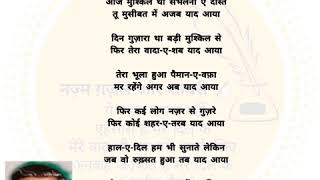 आज मुश्किल था सँभलना ऐ दोस्त
तू मुसीबत में अजब याद आया
दिन गुज़ारा था बड़ी मुश्किल से
फिर तेरा वादा-ए-शब याद आया
तेरा भूला हुआ पैमान-ए-वफ़ा
मर रहेंगे अगर अब याद आया
फिर कई लोग नज़र से गुज़रे
फिर कोई शहर-ए-तरब याद आया
हाल-ए-दिल हम भी सुनाते लेकिन
जब वो रुख़्सत हुआ तब याद आया